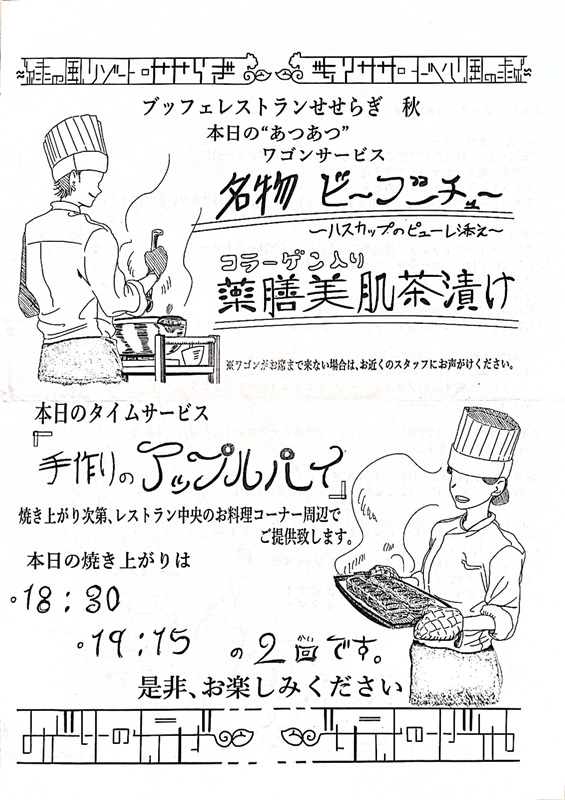 緑の風リゾート・ロ・せせらぎ
ブッフェレストランせせらぎ 秋
本日の“あつあつ”
ワゴンサービス
名物 ビーフシチュー
～ハスカップのピューレ添え～
コラーゲン入り
薬膳美肌茶漬け
※ワゴンがお席まで来ない場合は、お近くのスタッフにお声がけください。
本日のタイムサービス
『手作りのアップルパイ』
焼き上がり次第、レストラン中央のお料理コーナー周辺で
ご提供致します。
本日の焼き上がりは
◦18：30
◦19：15 の2回です。
是非、お楽しみください